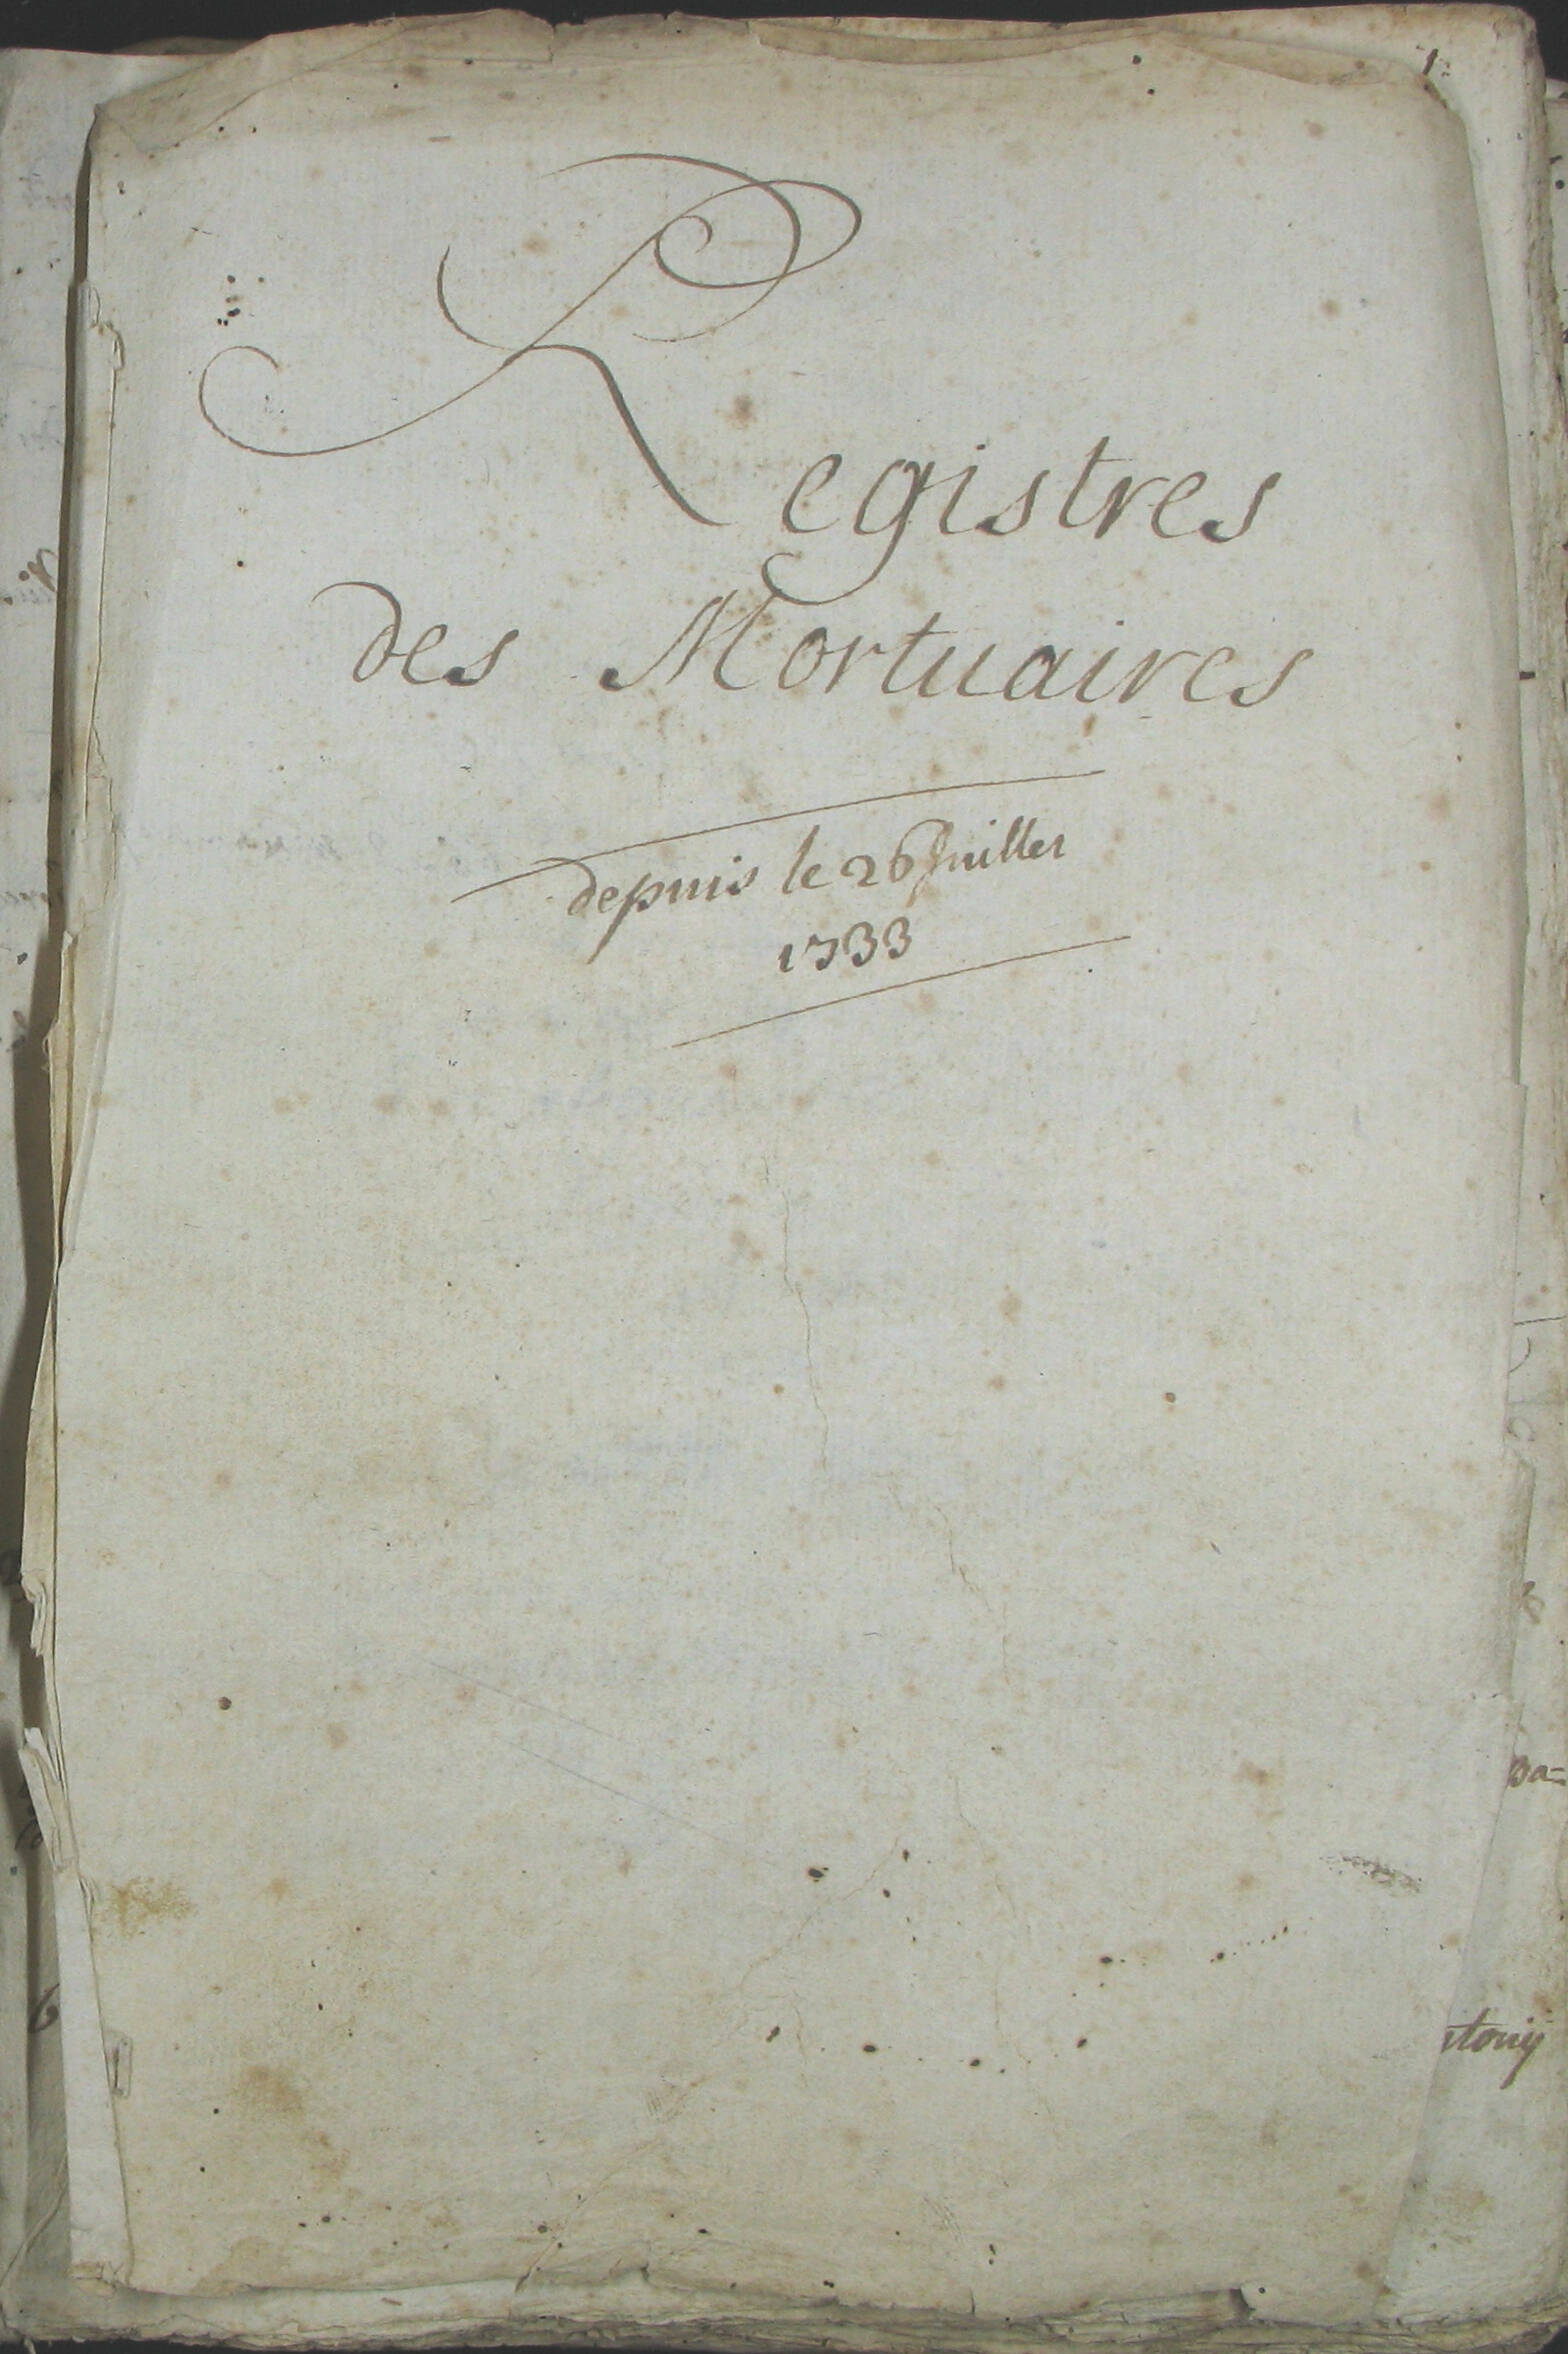 1.
Registres
des Mortuaires
depuis le 26 Juillet
1733
pa=
6